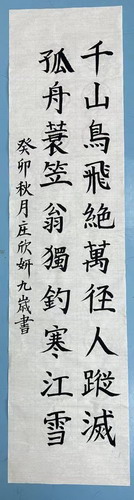 千山鳥飛絶萬徑人蹤滅
孤舟蓑笠翁獨釣寒江雪
癸卯秋月庄欣妍九歲書